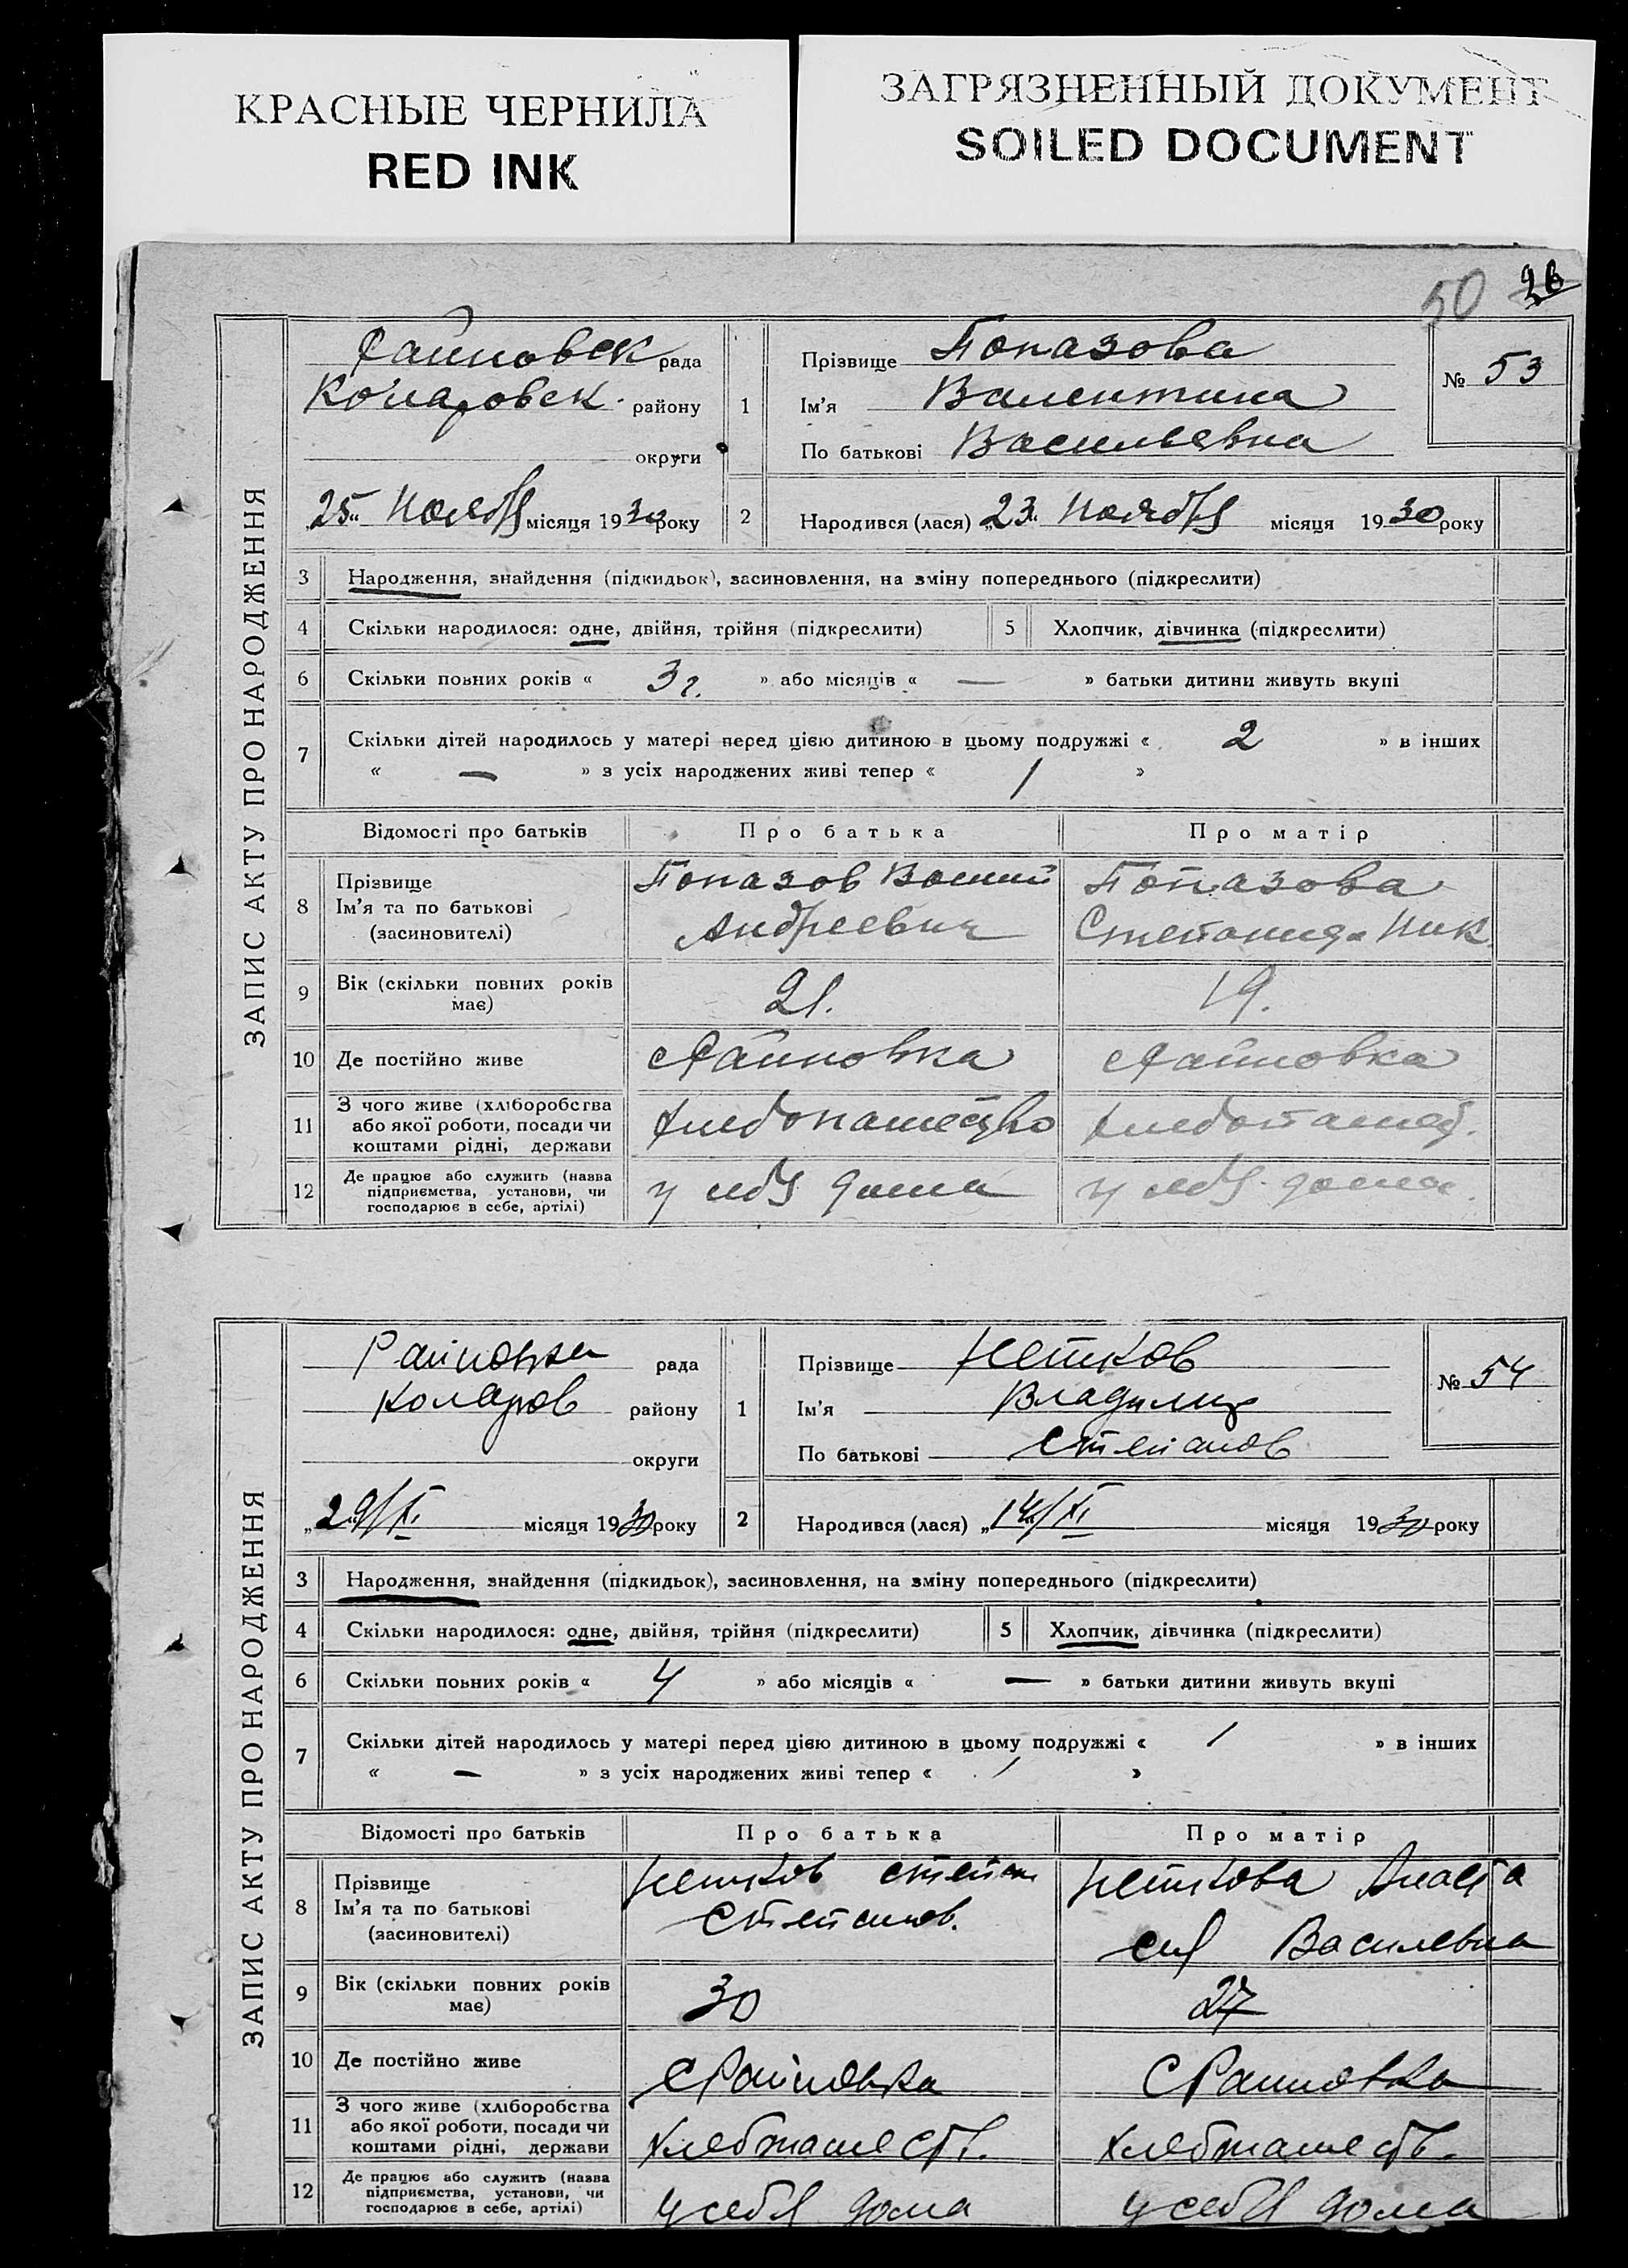 КРАСНЫЕ ЧЕРНИЛА
RED INK
ЗАГРЯЗНЕННЫЙ ДОКУМЕНТ
SOILED DOCUMENT
50
ЗАПИС АКТУ ПРО НАРОДЖЕННЯ
Райновск рада
Коларовск. району
округи
"25" Ноября місяця 1930 року
1 Прізвище Попазова
Ім'я Валентина
По батькові Васильевна
№ 53
2 Народився (лася) "23" Ноября місяця 1930 року
3 Народження, знайдення (підкидьок), засиновлення, на зміну попереднього (підкреслити)
4 Скільки народилося: одне, двійня, трійня (підкреслити) 5 Хлопчик, дівчинка (підкреслити)
6 Скільки повних років « 3 г. » або місяців « — » батьки дитини живуть вкупі
7 Скільки дітей народилось у матері перед цією дитиною в цьому подружжі « 2 » в інших
« — » з усіх народжених живі тепер « 1 »
Відомості про батьків Про батька Про матір
8 Прізвище
Ім'я та по батькові
(засновителі)
Попазов
Андреевич
Попазова
Степанида Ник
9 Вік (скільки повних років
має)
21. 19.
10 Де постійно живе с Райновка с Райновка
11 З чого живе (хліборобства
або якої роботи, посади чи
коштами рідні, держави
хлебопашество хлебопашес.
12 Де працює або служить (назва
підприємства, установи, чи
господарює в себе, артілі)
у себя дома у себя дома.
ЗАПИС АКТУ ПРО НАРОДЖЕННЯ
Райновка рада
Коларов району
округи
"29/XI місяця 1930 року
1 Прізвище Нетков
Ім'я Владимир
По батькові Степанов
№ 54
2 Народився (лася) "14/XI місяця 1930 року
3 Народження, знайдення (підкидьок), засиновлення, на зміну попереднього (підкреслити)
4 Скільки народилося: одне, двійня, трійня (підкреслити) 5 Хлопчик, дівчинка (підкреслити)
6 Скільки повних років « 4 » або місяців « — » батьки дитини живуть вкупі
7 Скільки дітей народилось у матері перед цією дитиною в цьому подружжі « 1 » в інших
« — » з усіх народжених живі тепер « 1 »
Відомості про батьків Про батька Про матір
8 Прізвище
Ім'я та по батькові
(засиновителі)
Нетков Степан
Степанов.
Неткова Анаста
сия Василевна
9 Вік (скільки повних років
має)
30 27
10 Де постійно живе с Райновка с Райновка
11 З чого живе (хліборобства
або якої роботи, посади чи
коштами рідні, держави
хлебпашест. хлебпашеств.
12 Де працює або служить (назва
підприємства, установи, чи
господарює в себе, артілі)
у себя дома у себя дома